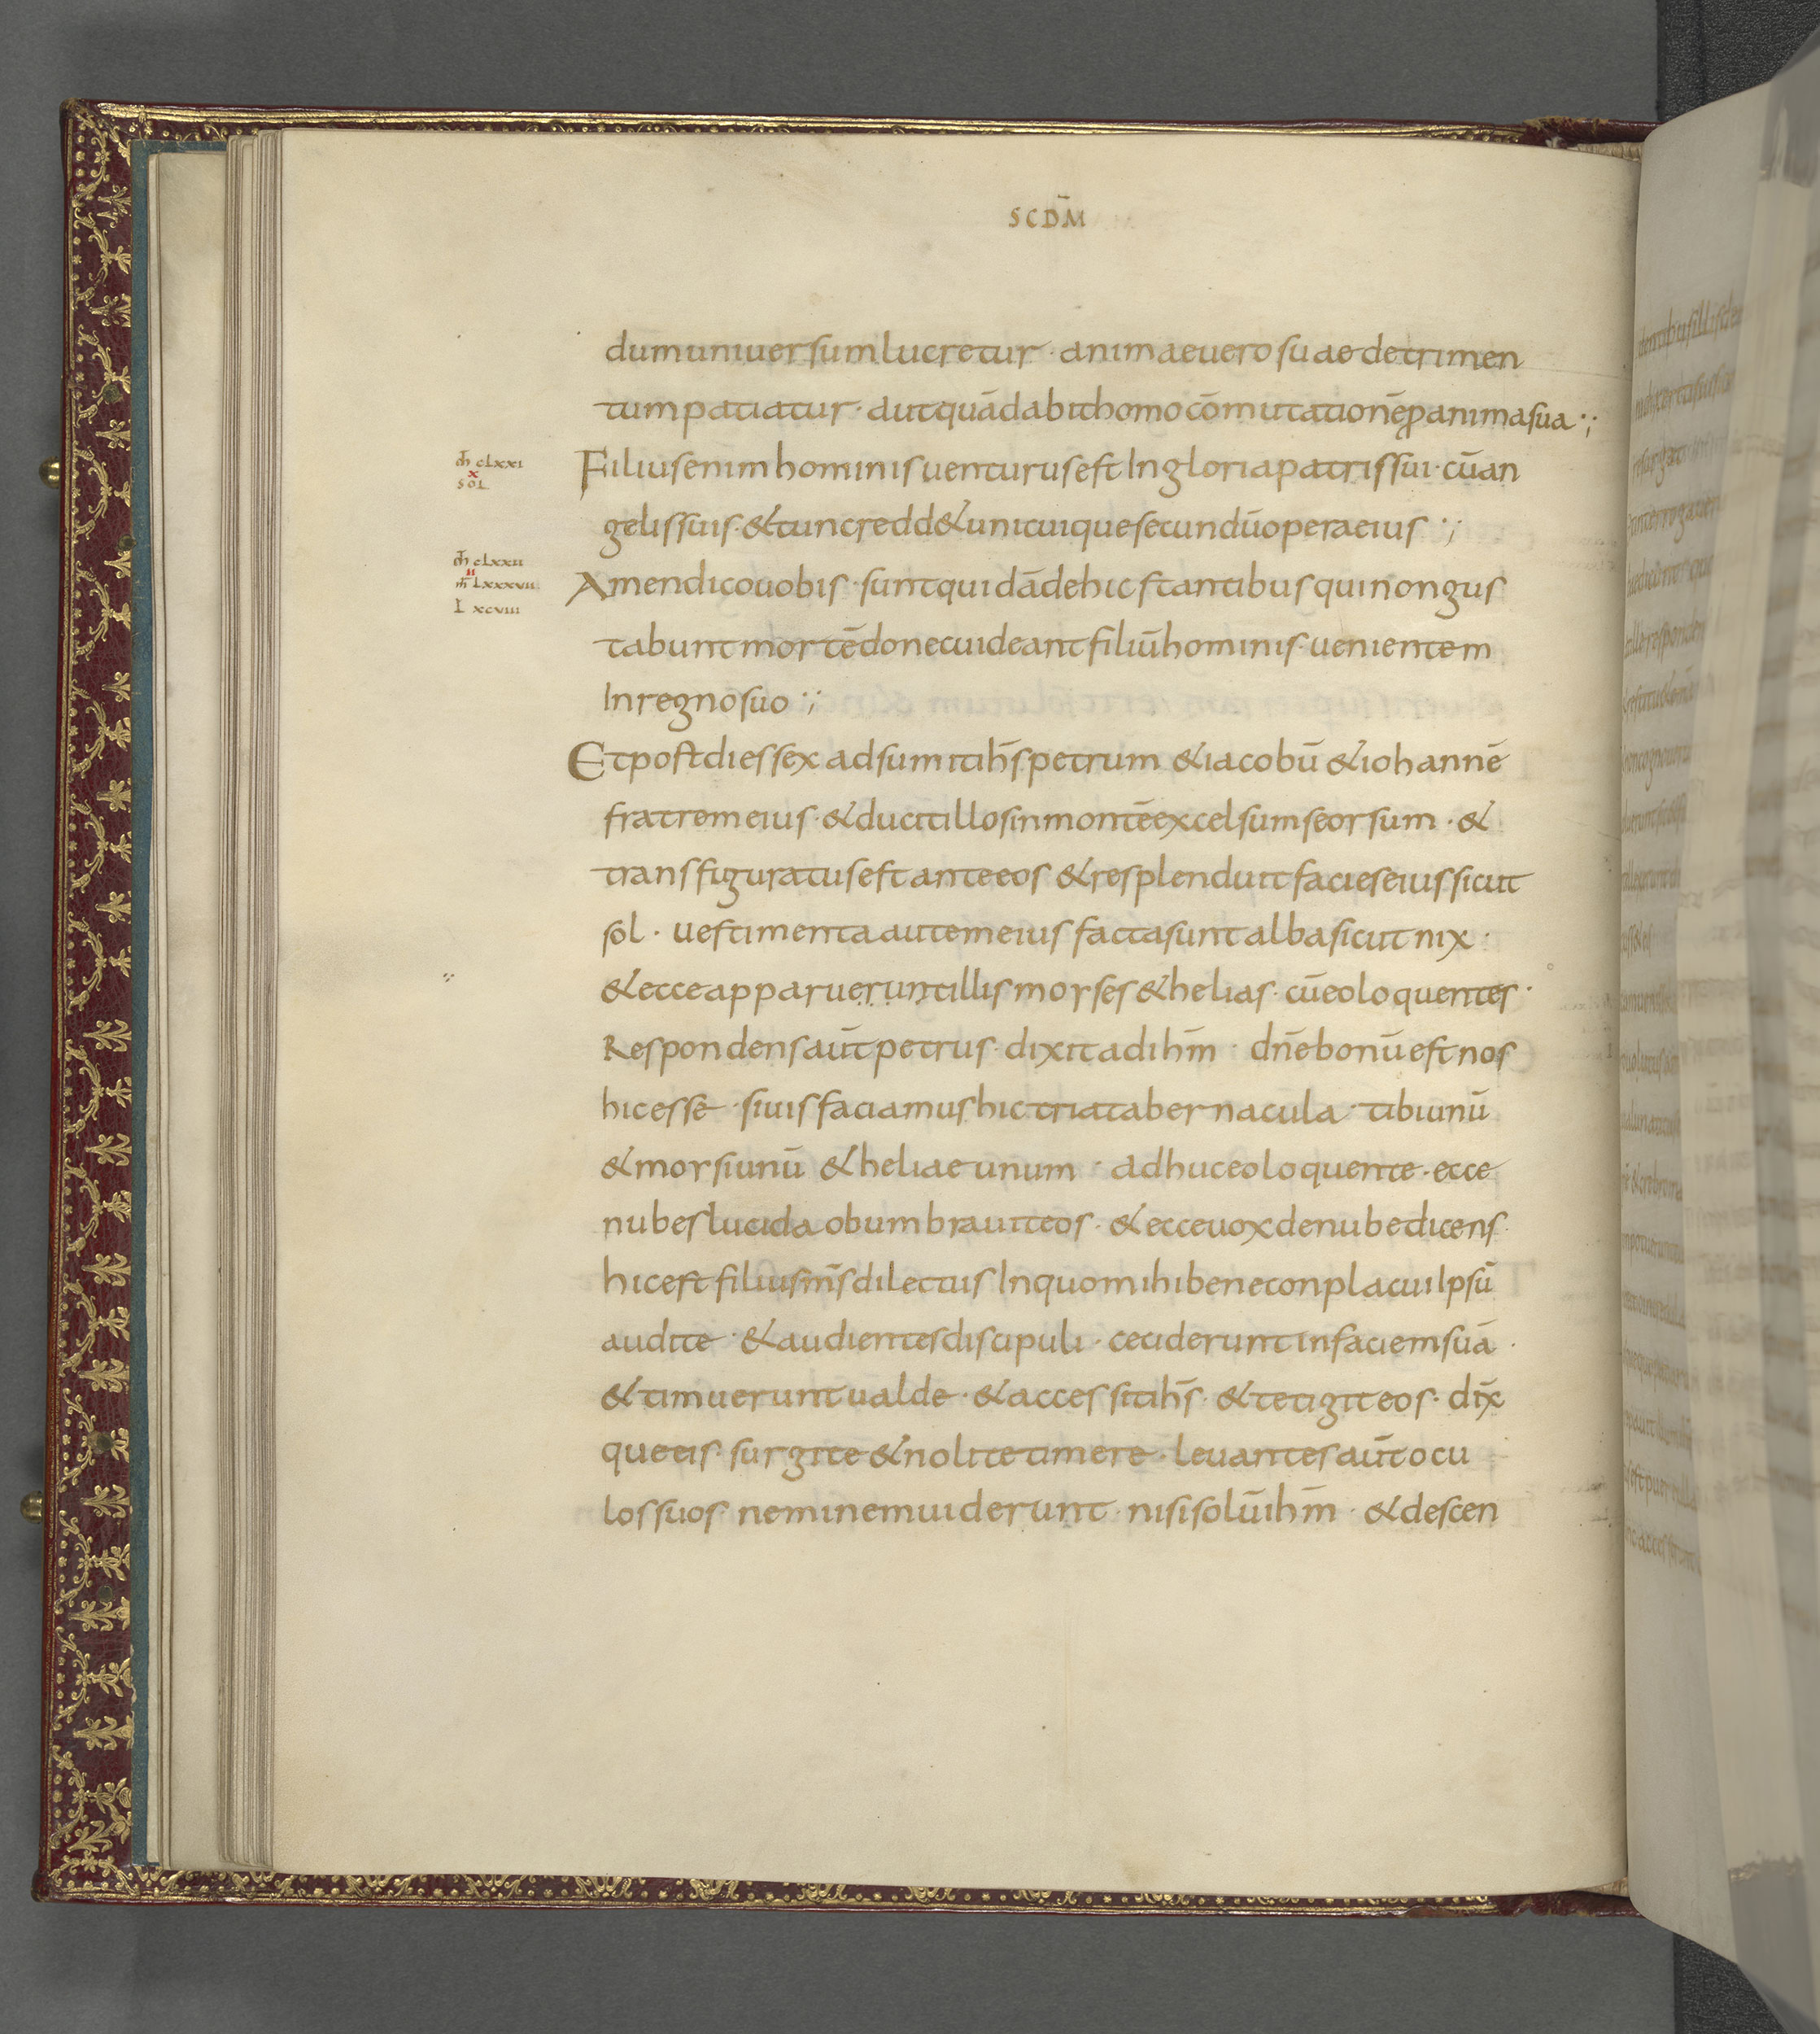 SCDM̄
dum uniuersum lucretur · animae uero suae detrimen
tum patiatur · aut quā dabit homo cōmutationē ꝓ anima sua ·:
m̄ clxxi
x
sol
Filius enim hominis uenturus est In gloria patris sui · cū an
gelis suis · & tunc redd& unicuique secundū opera eius ·:
m̄ clxxii
ii
m̄ lxxxvii
L xcviii
Amen dico uobis · sunt quidā de hic stantibus qui non gus
tabunt mortē donec uideant filiū hominis · uenientem
In regno suo ·:
Et post dies sex adsumit ih̄s petrum & iacobū & iohannē
fratrem eius · & ducit illos in montē excelsum seorsum · &
transfiguratus est ante eos & resplenduit facies eius sicut
sol · uestimenta autem eius facta sunt alba sicut nix ·
& ecce apparuerunt illis morses & helias · cū eo loquentes ·
Respondens aūt petrus · dixit ad ih̄m · dn̄e bonū est nos
hic esse · si uis faciamus hic tria tabernacula · tibi unū
& morsi unū & heliae unum · adhuc eo loquente · ecce
nubes lucida obumbrauit eos · & ecce uox de nube dicens ·
hic est filius m̄s dilectus In quo mihi bene conplacui Ipsū
audite · & audientes discipuli · ceciderunt in faciem suā ·
& timuerunt ualde · & accessit ih̄s · & tetigit eos · dix̄
que eis · surgite & nolite timere · leuantes aūt ocu
los suos · neminem uiderunt · nisi solū ih̄m · & descen